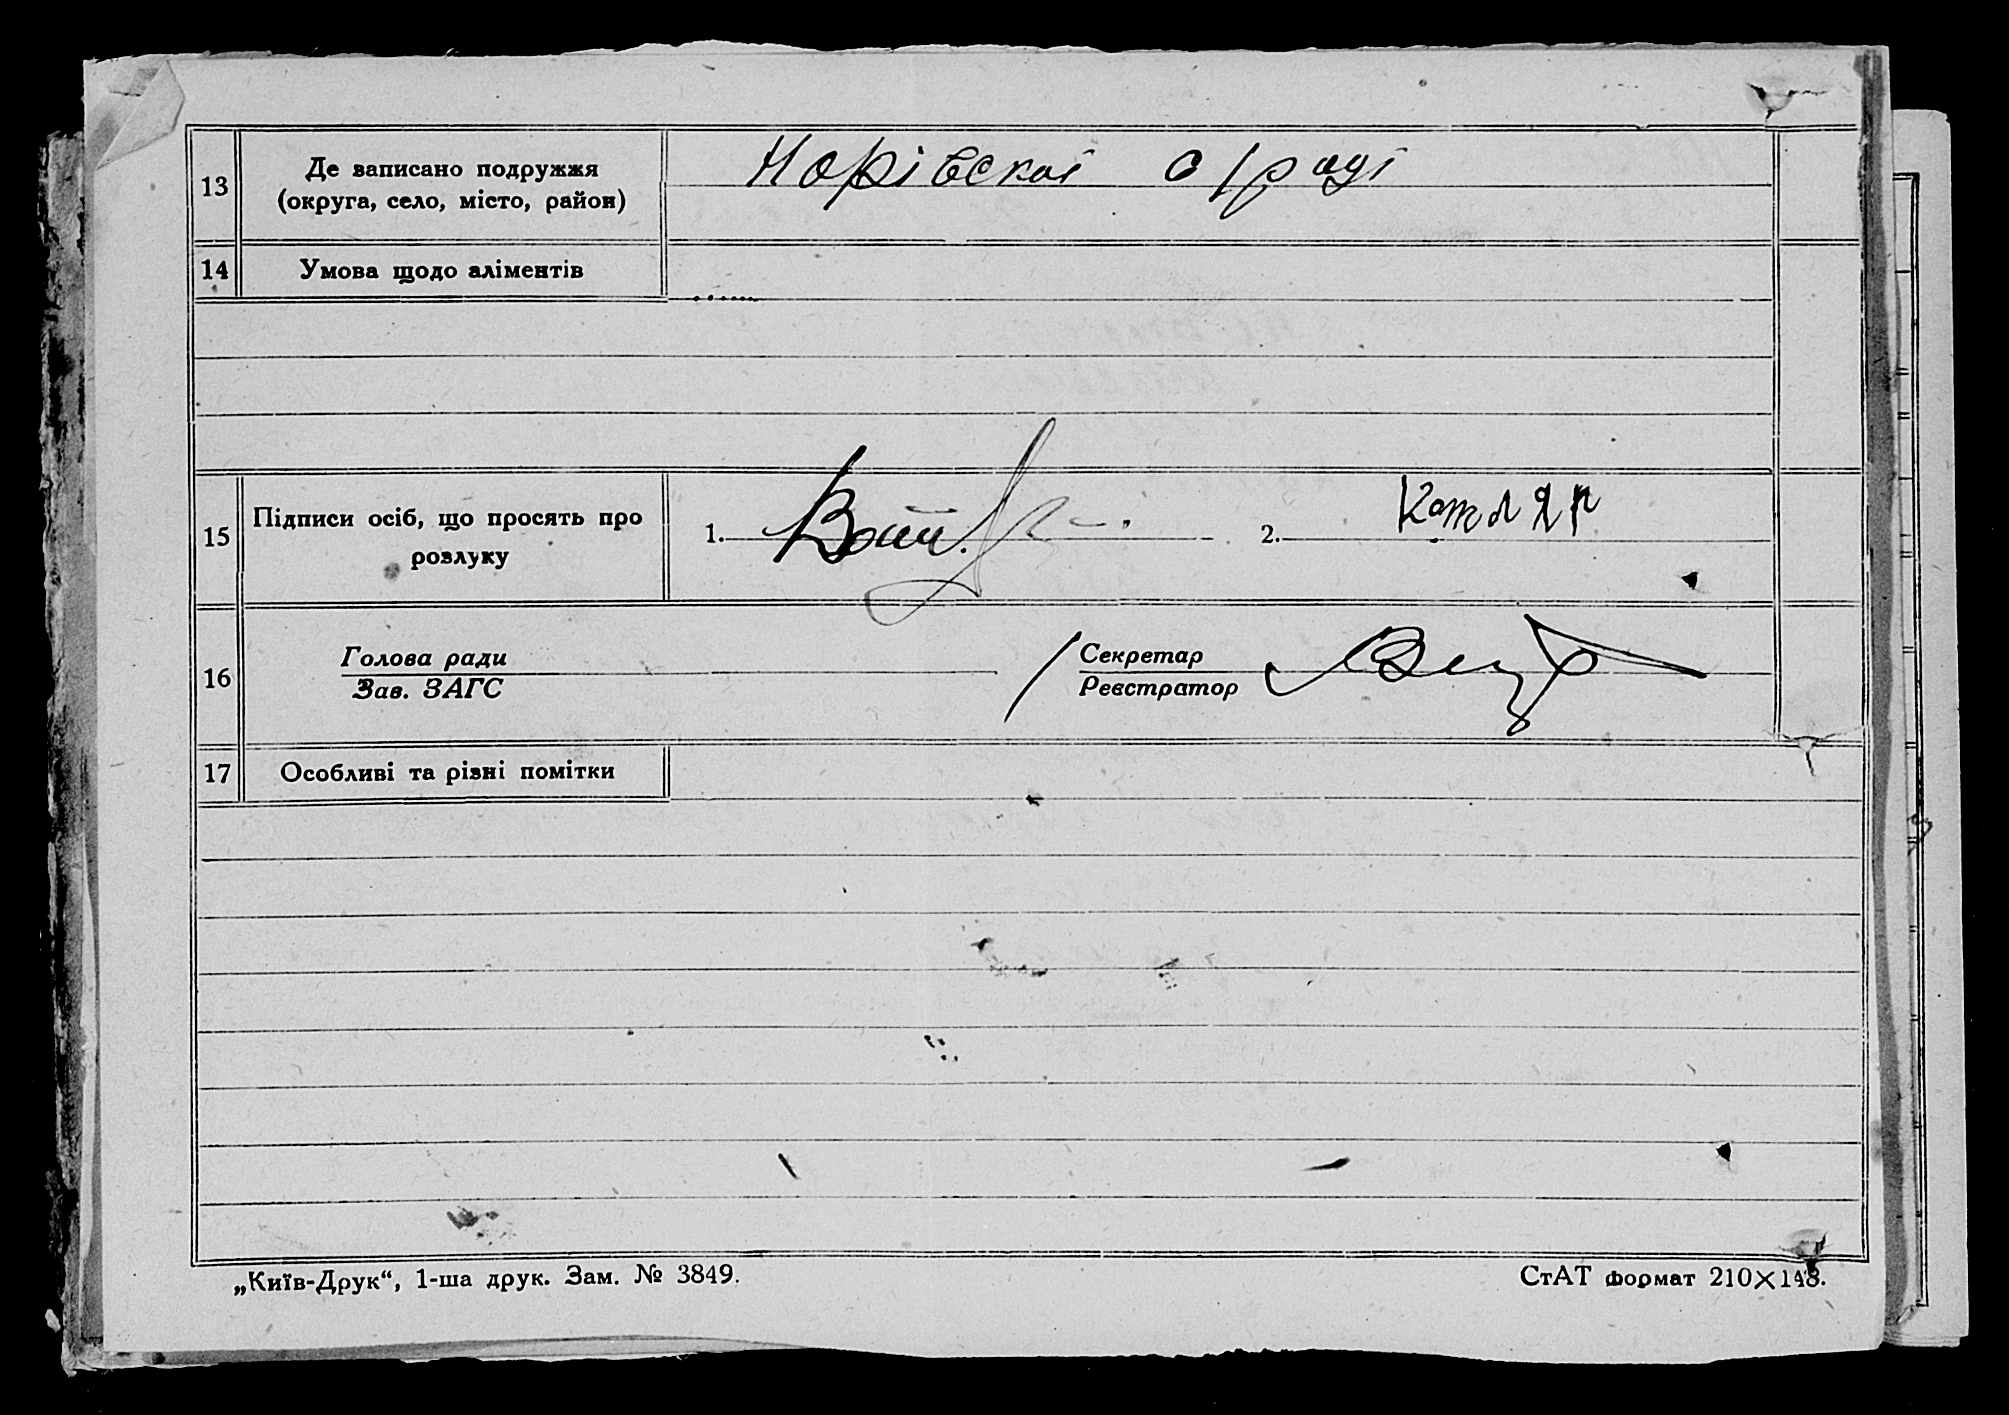 13 Де записано подружжя
(округа, село, місто, район)
Норівскої с/раді
14 Умова щодо аліментів
15 Підписи осіб, що просять про
розлуку
1. 2. Котляр
16 Голова ради
Зав. ЗАГС
Секретар
Реєстратор
17 Особливі та різні помітки
„Київ-Друк“, 1-ша друк. Зам. № 3849.
СтАТ формат 210×148.